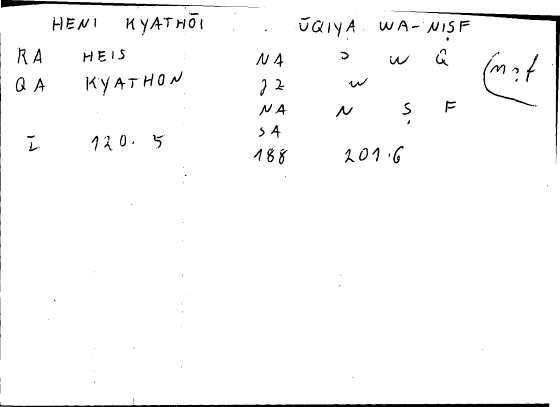 HENI KYATHŌI . ŪQIYA WA-NIṢF
RA HEIS NA Ɔ W Q
QA KYATHON 22 W
NA N Ṣ F
SA
I 120.5 188 201.6